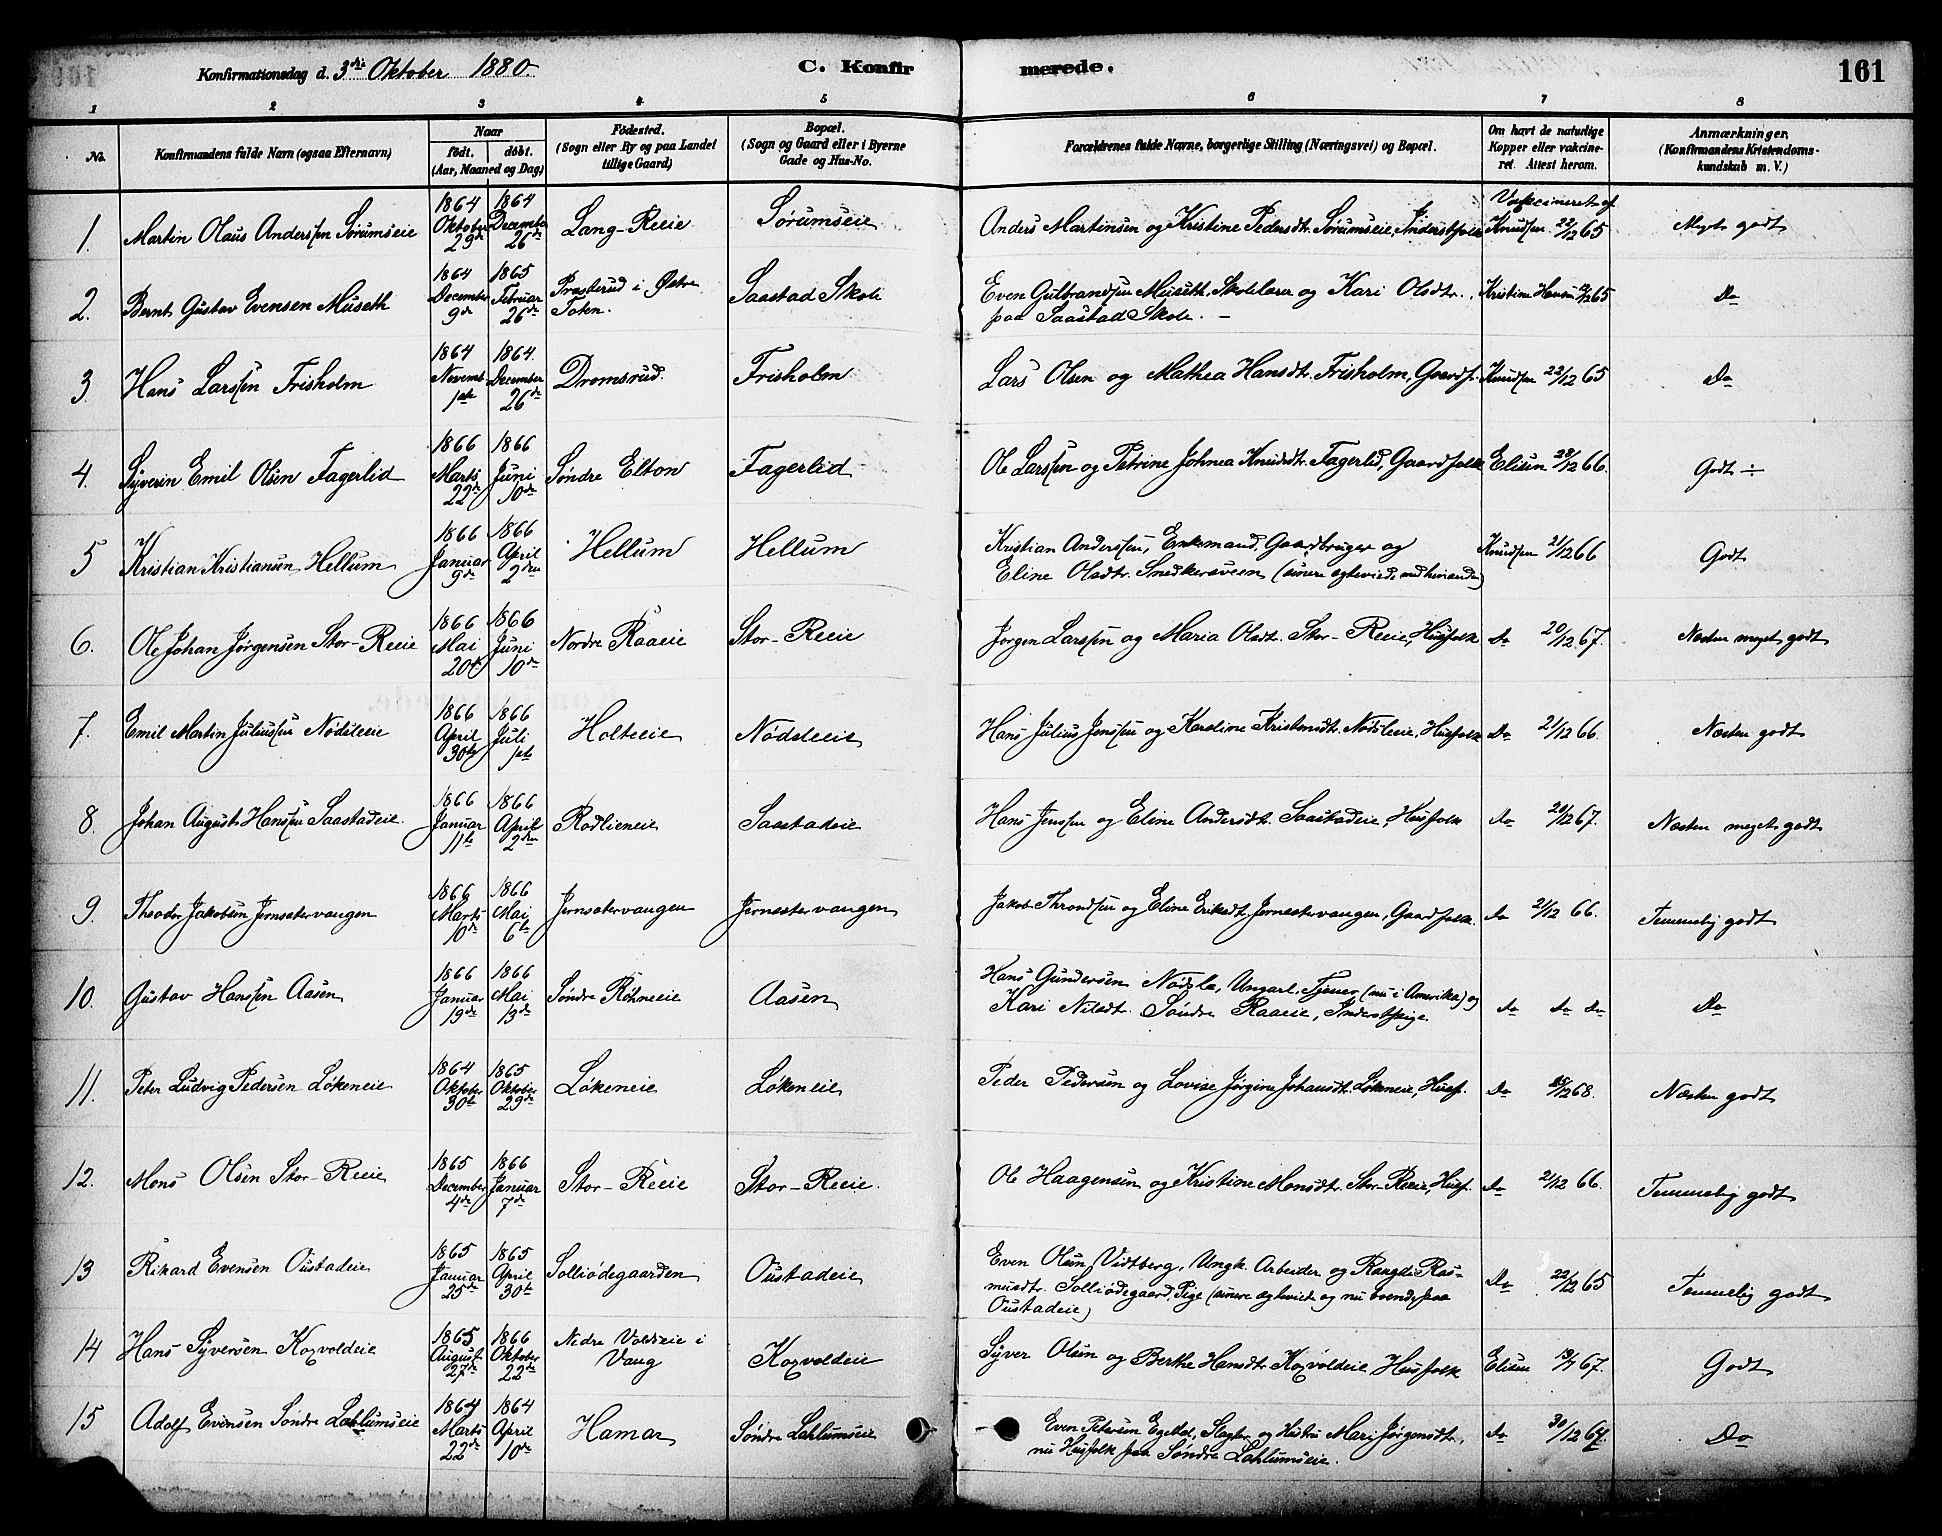 Konfirmationsdag d. 3die Oktober 1880. C. Konfirmerede. 161
1 2 3 4 5 6 7 8
No. Konfirmandens fulde Navn (ogsaa Efternavn) Naar født. døbt. (Aar, Maaned og Dag) Fødested. (Sogn eller By og paa Landet tillige Gaard) Bopæl. (Sogn og Gaard eller i Byerne Gade og Hus-No. Forældrenes fulde Navne, borgerlige Stilling (Næringsvei) og Bopæl. Om havt de naturlige Kopper eller vakcineret. Attest herom. Anmærkninger. (Konfirmandens Kristendomskundskab m. V.)
1. Martin Olaus Anderssen Sørumseie 1864 Oktober 29de 1864 December 26de Lang-Reeie Sørumseie Anders Martinsen og Kristine Pedersdtr. Sørumseie, Inderstfolk Vakcineret af Knudsen 22/12 65 Meget godt
2. Bernt Gustav Evensen Museth 1864 December 9de 1865 Februar 26de Præsterud i Østre Toten. Saastad Skole Even Gulbrandsen Museth, Skolelærer og Kari Olsdtr.
paa Saastad Skole. Kristine Hansen 65 Do
3. Hans Larssen Frisholm 1864 Novemb. 1ste 1864. December 26de Dromsrud. Frisholm Lars Olsen og Mathea Hansdtr. Frisholm, Gaardf. Knudsen 22/12 65 Do
4. Syverin Emil Olsen Fagerlid 1866 Marts 22de 1866 Juni 10de Søndre Elton Fagerlid Ole Larssen og Petrine Johnea Knudsdtr. Fagerlid, Gaardfolk Elisen 28/12 66. Godt ÷
5 Kristian Kristiansen Hellum 1866 Januar 9de 1866 April 2den Hellum Hellum Kristian Anderssen, Enkemand, Gaardbruger og
Eline Olsdtr. Snedkersveen (senere ægteviede med hinanden) Knudsen 21/12 66 Godt
6. Ole Johan Jørgensen Stor-Reeie 1866 Mai 20de 1866 Juni 10de Nordre Raaeie Stor-Reeie Jørgen Larssen og Maria Olsdt. Stor-Reeie, Husfolk Do 20/12 67. Næsten meget godt
7. Emil Martin Juliussen Nødsleeie 1866 April 30te 1866 Juli 1ste Holteeie Nødsleeie Hans Julius Jenssen og Karoline Kristensdt. Nødsleeie, Husfolk Do 21/12 66. Næsten godt
8. Johan August Hanssen Saastadeie. 1866 Januar 11te 1866 April 2den Rødlieneie Saastadeie Hans Jenssen og Eline Andersdt. Saastadeie, Husfolk Do 20/12 67. Næsten meget godt
9. Theodor Jakobsen Jernsætervangen 1866 Marts 10de 1866 Mai 6te Jernsætervangen Jernsætervangen Jakob Throndsen og Eline Eriksdt. Jernsætervangen, Gaardfolk. Do 21/12 66. Temmelig godt
10. Gustav Hanssen Aasen 1866 Januar 19de 1866 Mai 13de Søndre Røhneeie Aasen Hans Gundersen Nødsle, Ungarl, Tjener (nu i Amerika) og
Kari Nilsdt. Søndre Raaeie, Inderstpige Do Do Do Do
11. Peter Ludvig Pedersen Løkeneie 1864 Oktober 30te 1865 Oktober 29de Løkeneie Løkeneie Peder Pedersen og Lovise Jørgine Johansdt. Løkeneie, Husf. Do /12 68. Næsten godt
12. Mons Olsen Stor-Reeie 1865 December 4de 1866 Januar 7de Stor-Reeie Stor-Reeie. Ole Haagensen og Kristine Monsdt. Stor-Reeie, Husf. Do 21/12 66. Temmelig godt
13 Rikard Evensen Oustadeie 1865 Januar 25de 1865 April 30te Solliødegaarden Oustadeie Even Olsen Vidtberg, Ungk. Arbeider og Rangdi Ras-
musdtr. Solliødegaard, Pige (senere ægteviede og nu boende paa
Oustadeie) Do 22/12 65 Temmelig godt
14 Hans Syversen Koxvoldeie 1865 August 27de 1866 Oktober 22de Nedre Voldseie i Vang Koxvoldeie Syver Olsen og Berthe Hansdtr. Koxvoldeie, Husfolk Elisen 13/7 67. Godt
15 Adolf Evensen Søndre Lahlumseie 1864 Marts 22de 1864 April 10de Hamar Søndre Lahlumseie Even Petersen Egeblot, Slagter og Hustru Mari Jørgensdtr.,
nu Husfolk paa Søndre Lahlumseie. Do 30/12 64 Do